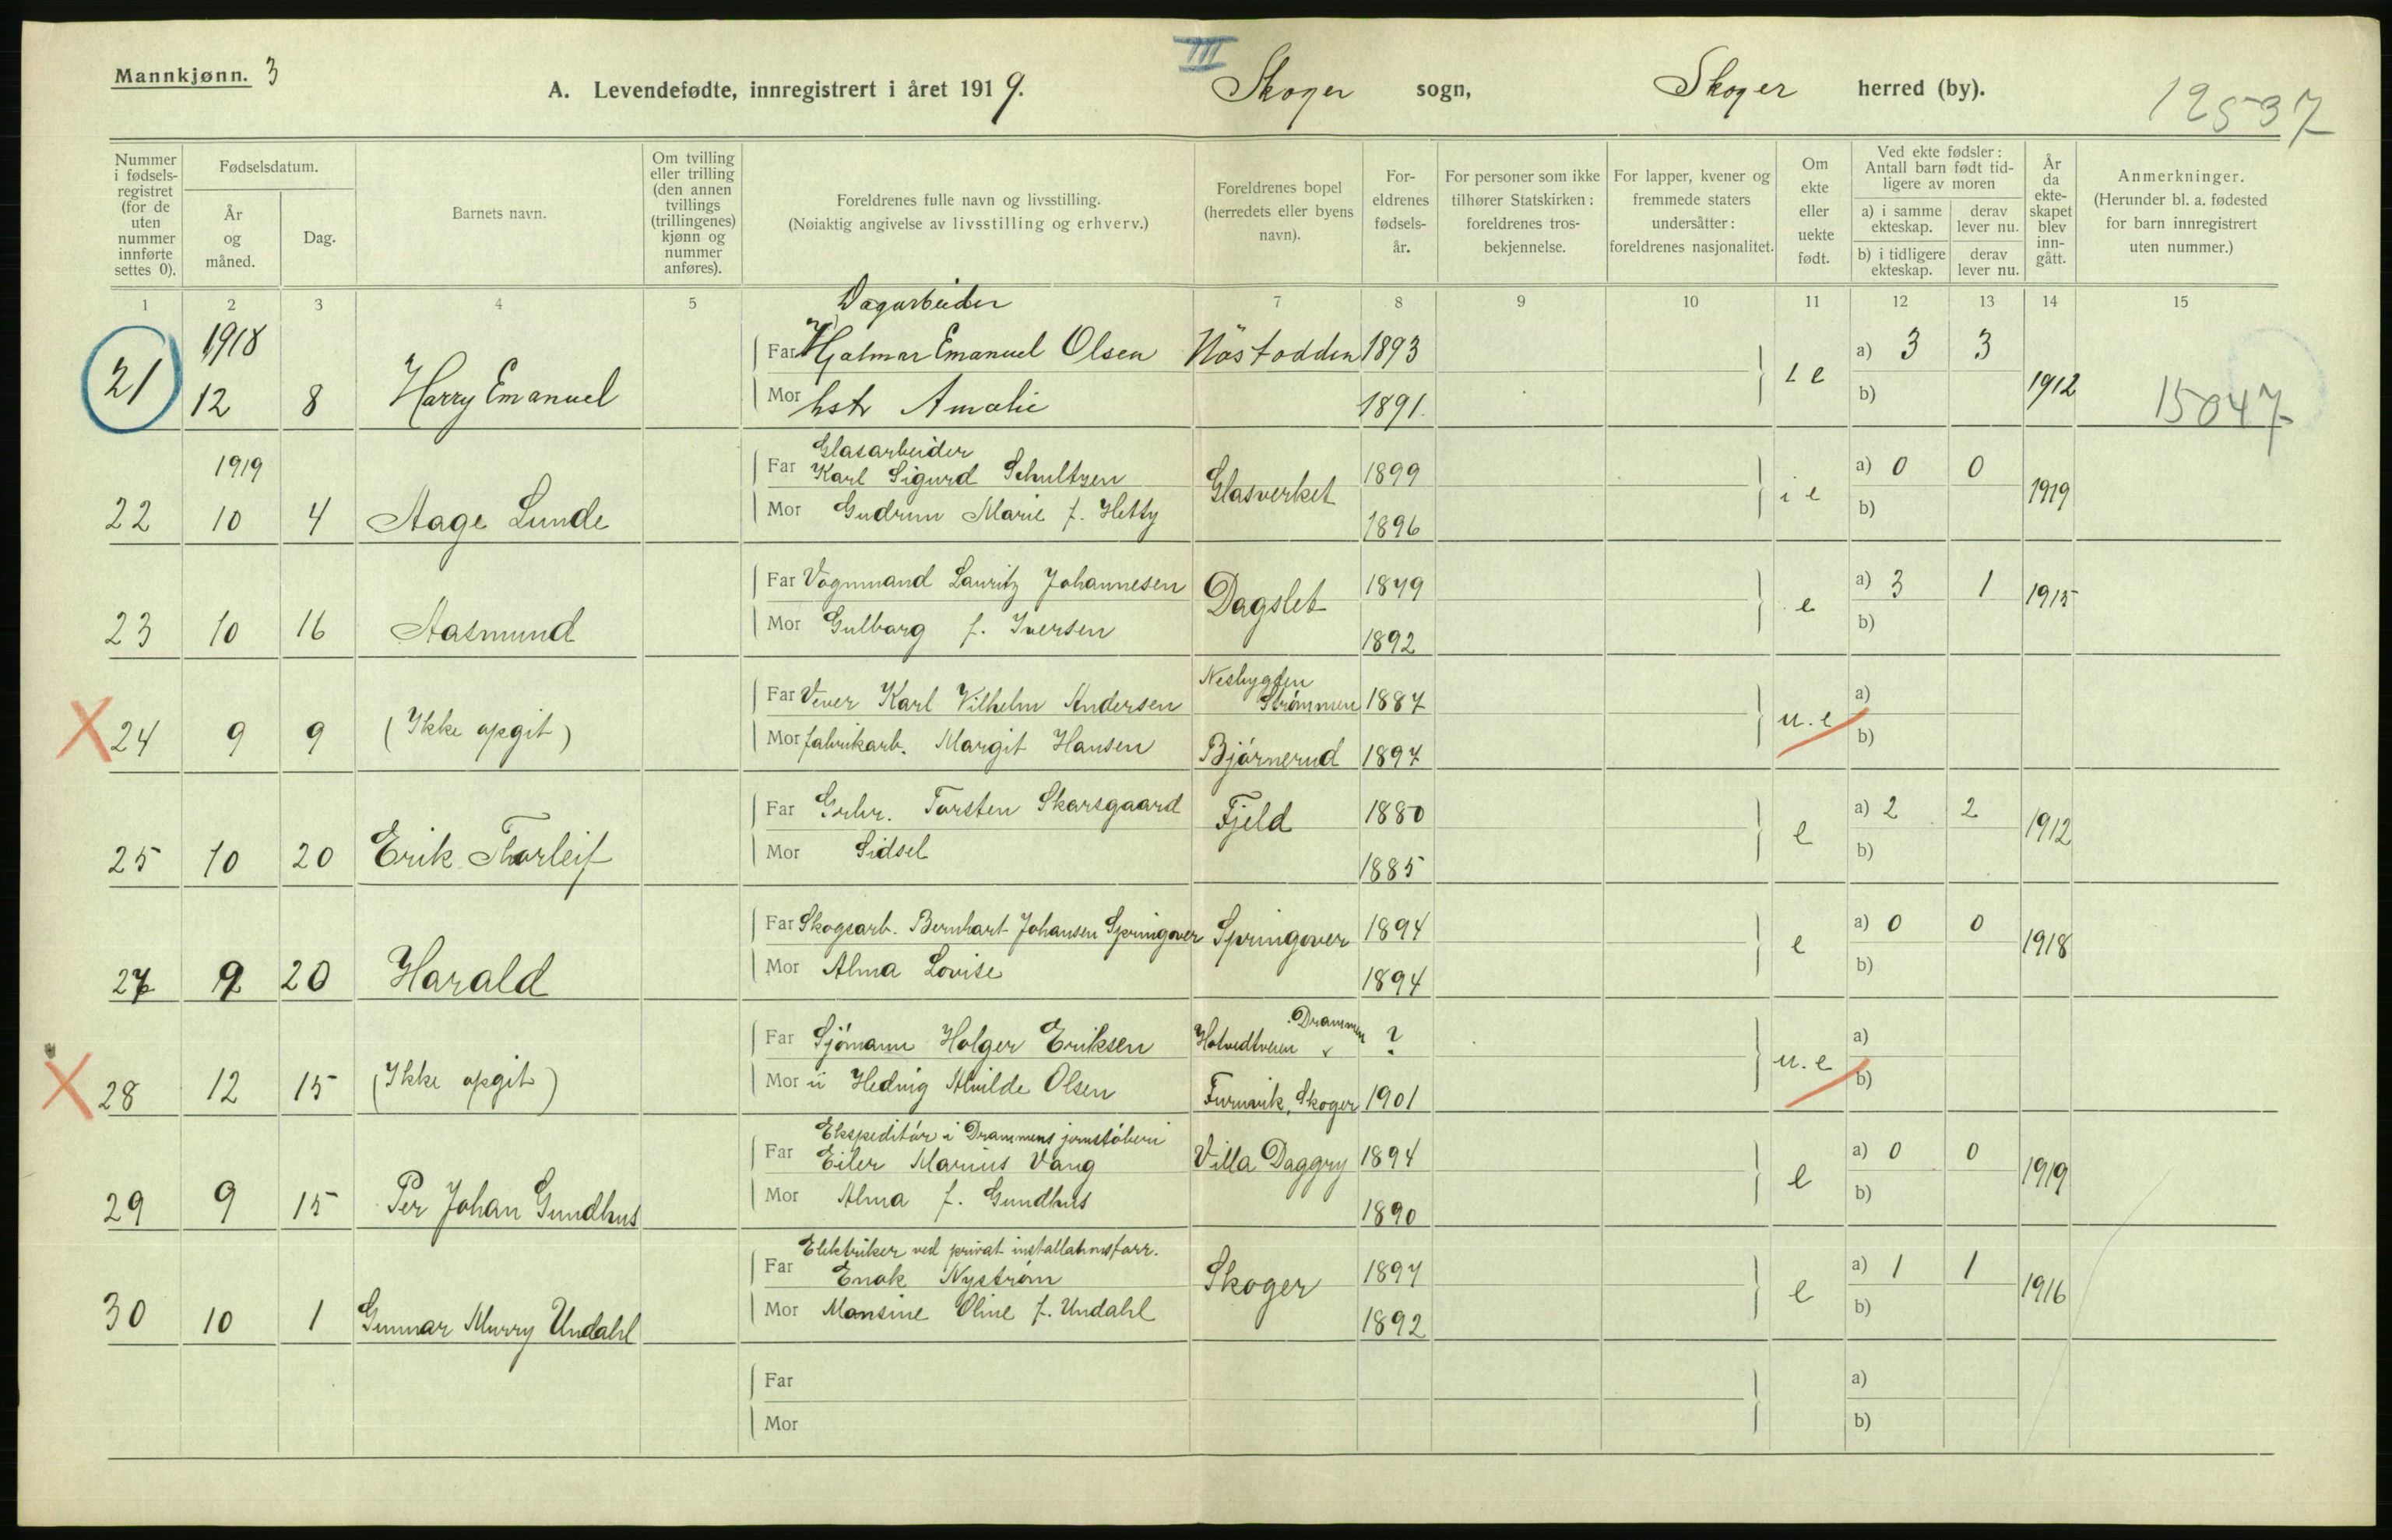 III
Mannkjønn. 3
A. Levendefødte, innregistrert i året 1919. Skoger sogn, Skoger herred (by).
12537
Nummer i fødsels-registret (for de uten nummer innførte settes 0).
Fødselsdatum.
År og måned.
Dag.
Barnets navn.
Om tvilling eller trilling (den annen tvillings (trillingenes) kjønn og nummer anføres).
Foreldrenes fulle navn og livsstilling.
(Nøiaktig angivelse av livsstilling og erhverv.)
Foreldrenes bopel (herredets eller byens navn).
For-eldrenes fødsels-år.
For personer som ikke tilhører Statskirken: foreldrenes tros-bekjennelse.
For lapper, kvener og fremmede staters undersåtter: foreldrenes nasjonalitet.
Om ekte eller uekte født.
Ved ekte fødsler: Antall barn født tid-ligere av moren
a) i samme ekteskap.
derav lever nu.
b) i tidligere ekteskap.
derav lever nu.
År da ekte-skapet blev inn-gått.
Anmerkninger.
(Herunder bl. a. fødested for barn innregistrert uten nummer.)
1 2 3 4 5 7 8 9 10 11 12 13 14 15
Dagarbeider
1918
Far Hjalmar Emanuel Olsen Nöstodden 1893 a) 3 3
21 12 8 Harry Emanuel e 1912
Mor hstr Amalie 1891. b)
15047
Glasarbeider
1919 Far Karl Sigurd Schultzen Glasverket 1899 a) 0 0
22 10 4 Aage Lunde i e 1919
Mor Gudrun Marie f. Hetty 1896 b)
Far Vognmand Lauritz Johannesen Dagslet 1879 a) 3 1
23 10 16 Aasmund e 1915
Mor Gulbarg f. Iversen 1892 b)
Nesbygden
Far Vever Karl Vilhelm Andersen Strømmen 1887 a)
X 24 9 9 (Ikke opgit) u.e
Mor fabrikarb. Margit Hansen Bjørnerud 1897 b)
Far Grbr. Torsten Skarsgaard Fjeld 1880 a) 2 2
25 10 20 Erik Thorleif e 1912
Mor Sidsel 1885 b)
Far Skogsarb. Bernhart Johansen Springover Springover 1894 a) 0 0
27 9 20 Harald e 1918
Mor Alma Lovise 1894 b)
Drammen
Far Sjömann Holger Eriksen ? a)
X 28 12 15 (Ikke opgit) u.e
Mor Hedvig Alvilde Olsen Furuvik, Skoger 1901 b)
Ekspeditör i Drammens jernstöberi
Far Eiler Marius Vang Villa Daggry 1894 a) 0 0
29 9 15 Per Johan Gundhus e 1919
Mor Alma f. Gundhus 1890 b)
Elektriker ved privat installationsforr.
Far Enok Nyström Skoger 1897 a) 1 1
30 10 1 Gunnar Murry Undahl e 1916
Mor Mansine Oline f. Undahl 1892 b)
Far a)
Mor b)